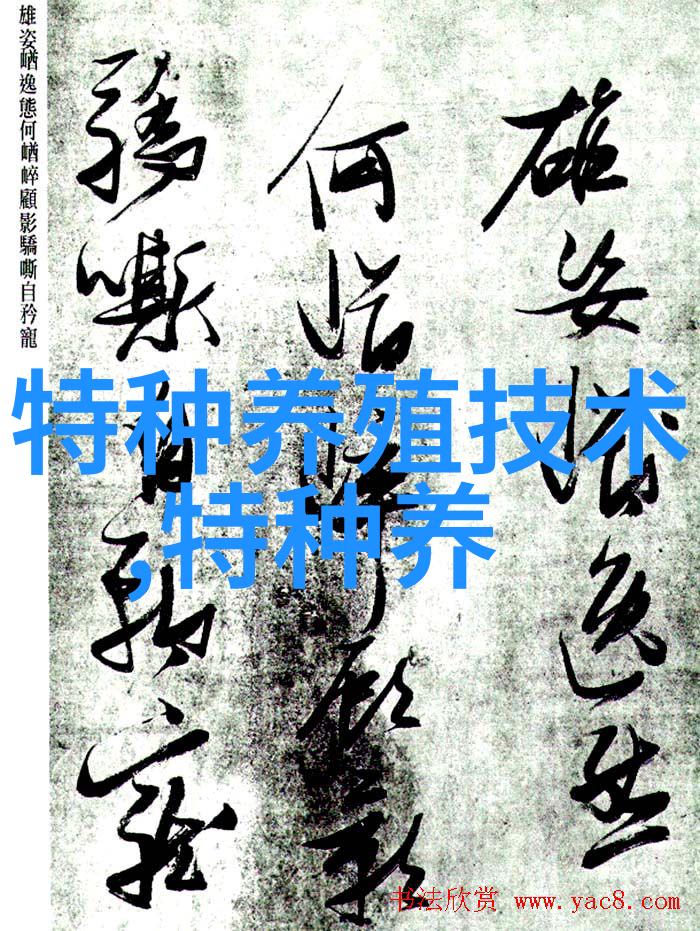 雄姿崷逸態
何崷崪顧影
驕嘶自矜寵
雄姿崷逸態何崷崪顧影驕嘶自矜寵
特种养殖技术
,特种养
书法欣赏 www.yac8.com